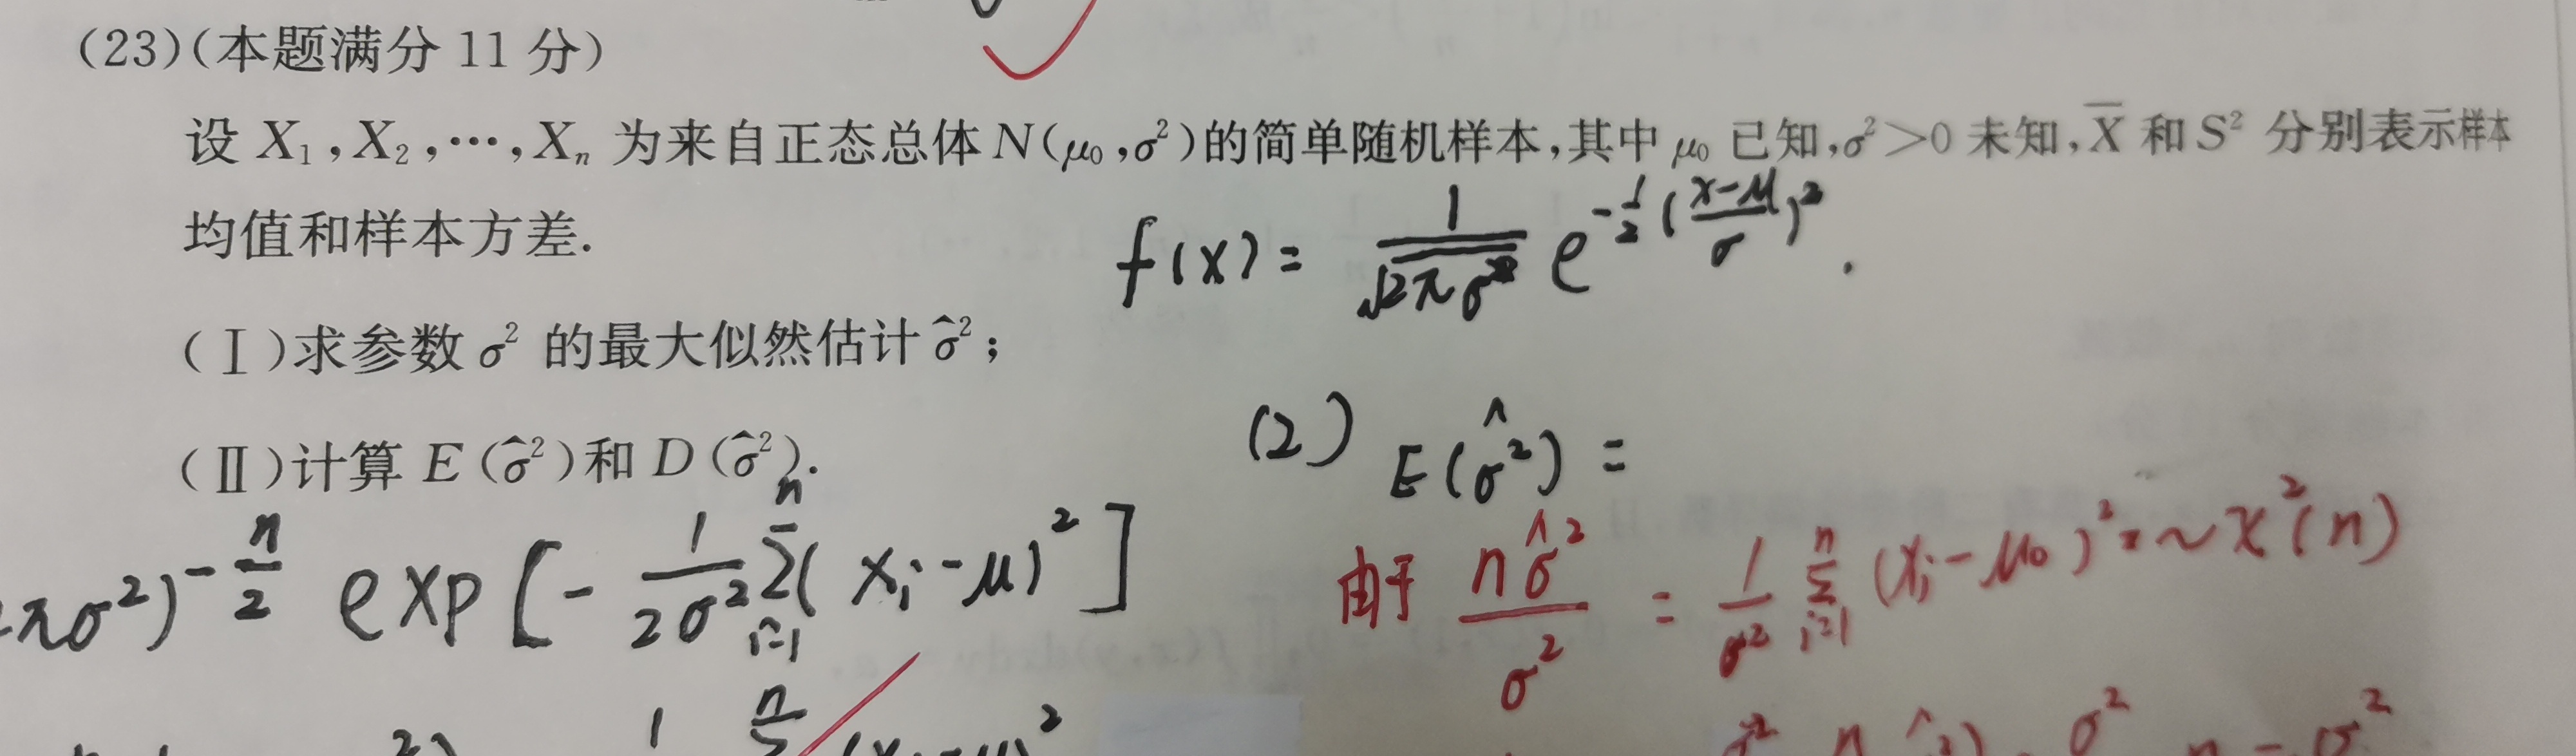 (23)(本题满分 11 分)
设 X₁,X₂,⋯,Xₙ 为来自正态总体 N(μ₀,σ²)的简单随机样本,其中 μ₀ 已知,σ²>0 未知,X̅ 和 S² 分别表示样本
均值和样本方差.
f(x) = 1/√(2πσ²) e^{-1/2((x-μ)/σ)²}.
(Ⅰ)求参数 σ² 的最大似然估计 σ̂²;
(Ⅱ)计算 E(σ̂²)和 D(σ̂²).
(2) E(σ̂²) =
πσ²)^{-n/2} exp[-1/(2σ²) Σ_{i=1}^{n}(xᵢ-μ)²]
由于 nσ̂²/σ² = 1/σ² Σ_{i=1}^{n}(xᵢ-μ₀)² ~ χ²(n)